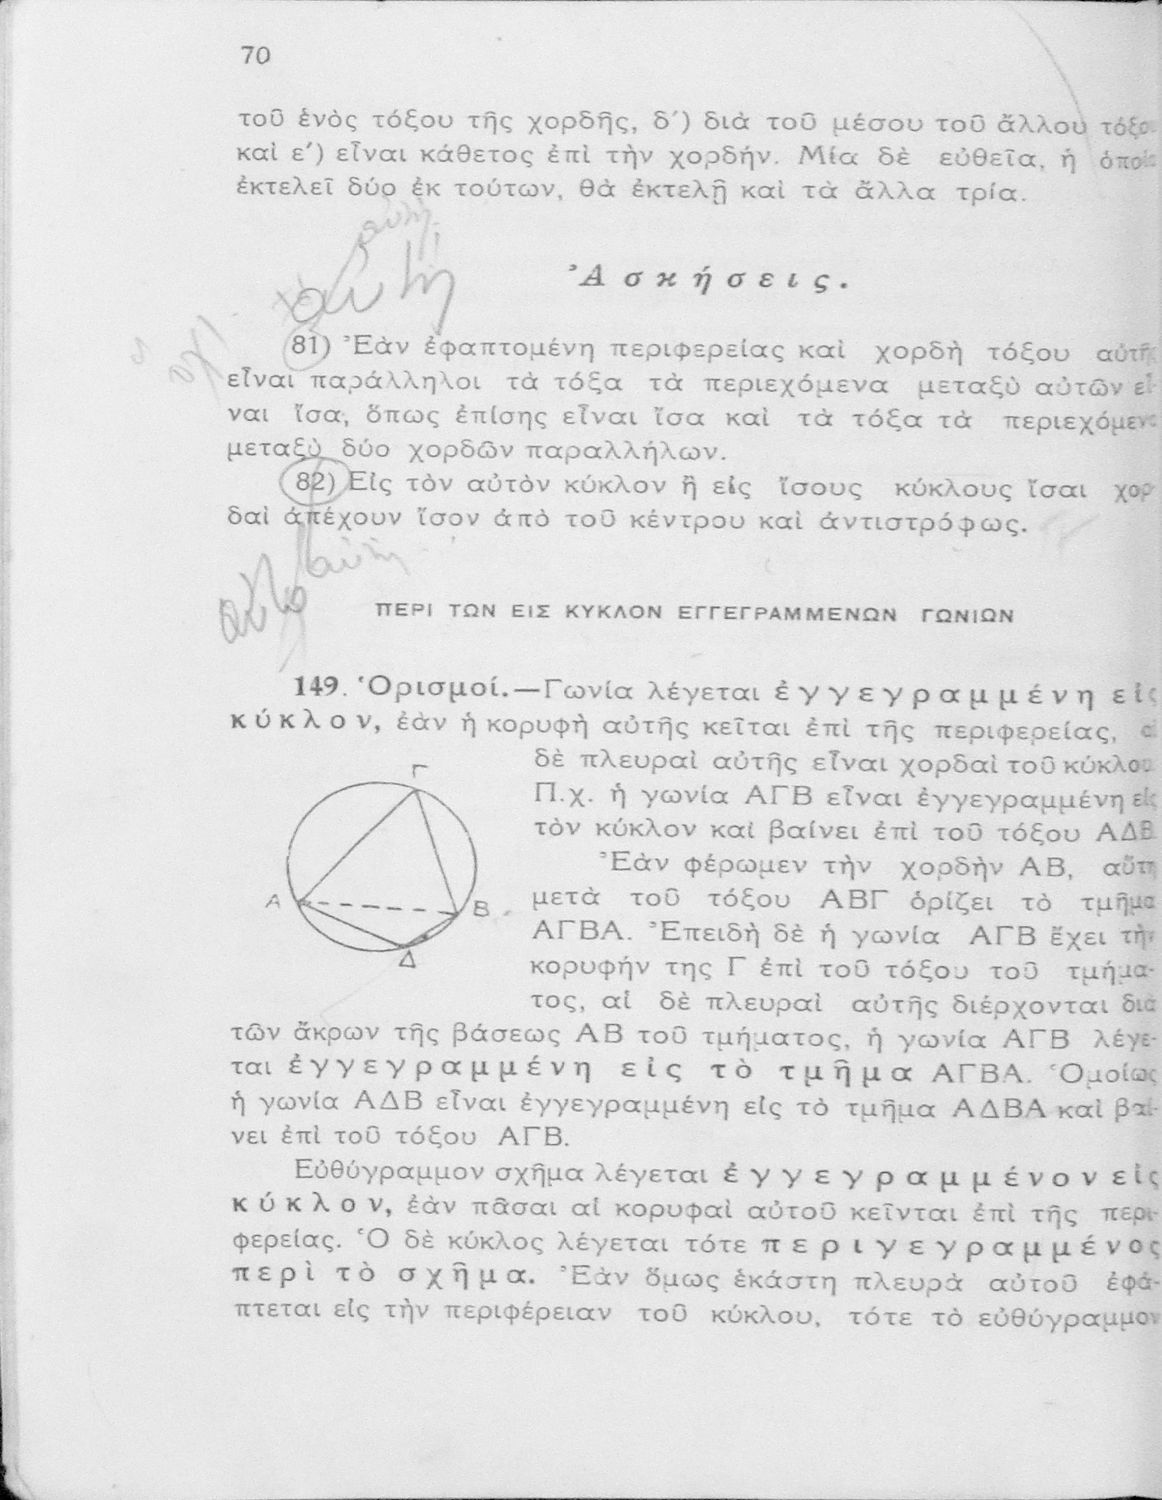 70
τοῦ ἑνὸς τόξου τῆς χορδῆς, δ΄) διὰ τοῦ μέσου τοῦ ἄλλου τόξο
καὶ ε΄) εἶναι κάθετος ἐπὶ τὴν χορδήν. Μία δὲ εὐθεῖα, ἡ ὁποία
ἐκτελεῖ δύο ἐκ τούτων, θὰ ἐκτελῇ καὶ τὰ ἄλλα τρία.
αὐτὴ
αὐτὴ
Ἀσκήσεις.
ὄχι
81) Ἐὰν ἐφαπτομένη περιφερείας καὶ χορδὴ τόξου αὐτῆς
εἶναι παράλληλοι τὰ τόξα τὰ περιεχόμενα μεταξὺ αὐτῶν εἶ-
ναι ἴσα, ὅπως ἐπίσης εἶναι ἴσα καὶ τὰ τόξα τὰ περιεχόμενα
μεταξὺ δύο χορδῶν παραλλήλων.
82) Εἰς τὸν αὐτὸν κύκλον ἢ εἰς ἴσους κύκλους ἴσαι χορ
δαὶ ἀπέχουν ἴσον ἀπὸ τοῦ κέντρου καὶ ἀντιστρόφως.
αὐτὴ
αὐτὸ
ΠΕΡΙ ΤΩΝ ΕΙΣ ΚΥΚΛΟΝ ΕΓΓΕΓΡΑΜΜΕΝΩΝ ΓΩΝΙΩΝ
149. Ὁρισμοί.—Γωνία λέγεται ἐγγεγραμμένη εἰς
κύκλον, ἐὰν ἡ κορυφὴ αὐτῆς κεῖται ἐπὶ τῆς περιφερείας, αἱ
δὲ πλευραὶ αὐτῆς εἶναι χορδαὶ τοῦ κύκλου.
Π.χ. ἡ γωνία ΑΓΒ εἶναι ἐγγεγραμμένη εἰς
τὸν κύκλον καὶ βαίνει ἐπὶ τοῦ τόξου ΑΔΒ.
Ἐὰν φέρωμεν τὴν χορδὴν ΑΒ, αὕτη
μετὰ τοῦ τόξου ΑΒΓ ὁρίζει τὸ τμῆμα
ΑΓΒΑ. Ἐπειδὴ δὲ ἡ γωνία ΑΓΒ ἔχει τὴν
κορυφήν της Γ ἐπὶ τοῦ τόξου τοῦ τμήμα-
τος, αἱ δὲ πλευραὶ αὐτῆς διέρχονται διὰ
Γ
Α
Β
Δ
τῶν ἄκρων τῆς βάσεως ΑΒ τοῦ τμήματος, ἡ γωνία ΑΓΒ λέγε-
ται ἐγγεγραμμένη εἰς τὸ τμῆμα ΑΓΒΑ. Ὁμοίως
ἡ γωνία ΑΔΒ εἶναι ἐγγεγραμμένη εἰς τὸ τμῆμα ΑΔΒΑ καὶ βαί-
νει ἐπὶ τοῦ τόξου ΑΓΒ.
Εὐθύγραμμον σχῆμα λέγεται ἐγγεγραμμένον εἰς
κύκλον, ἐὰν πᾶσαι αἱ κορυφαὶ αὐτοῦ κεῖνται ἐπὶ τῆς περι-
φερείας. Ὁ δὲ κύκλος λέγεται τότε περιγεγραμμένος
περὶ τὸ σχῆμα. Ἐὰν ὅμως ἑκάστη πλευρὰ αὐτοῦ ἐφά-
πτεται εἰς τὴν περιφέρειαν τοῦ κύκλου, τότε τὸ εὐθύγραμμον